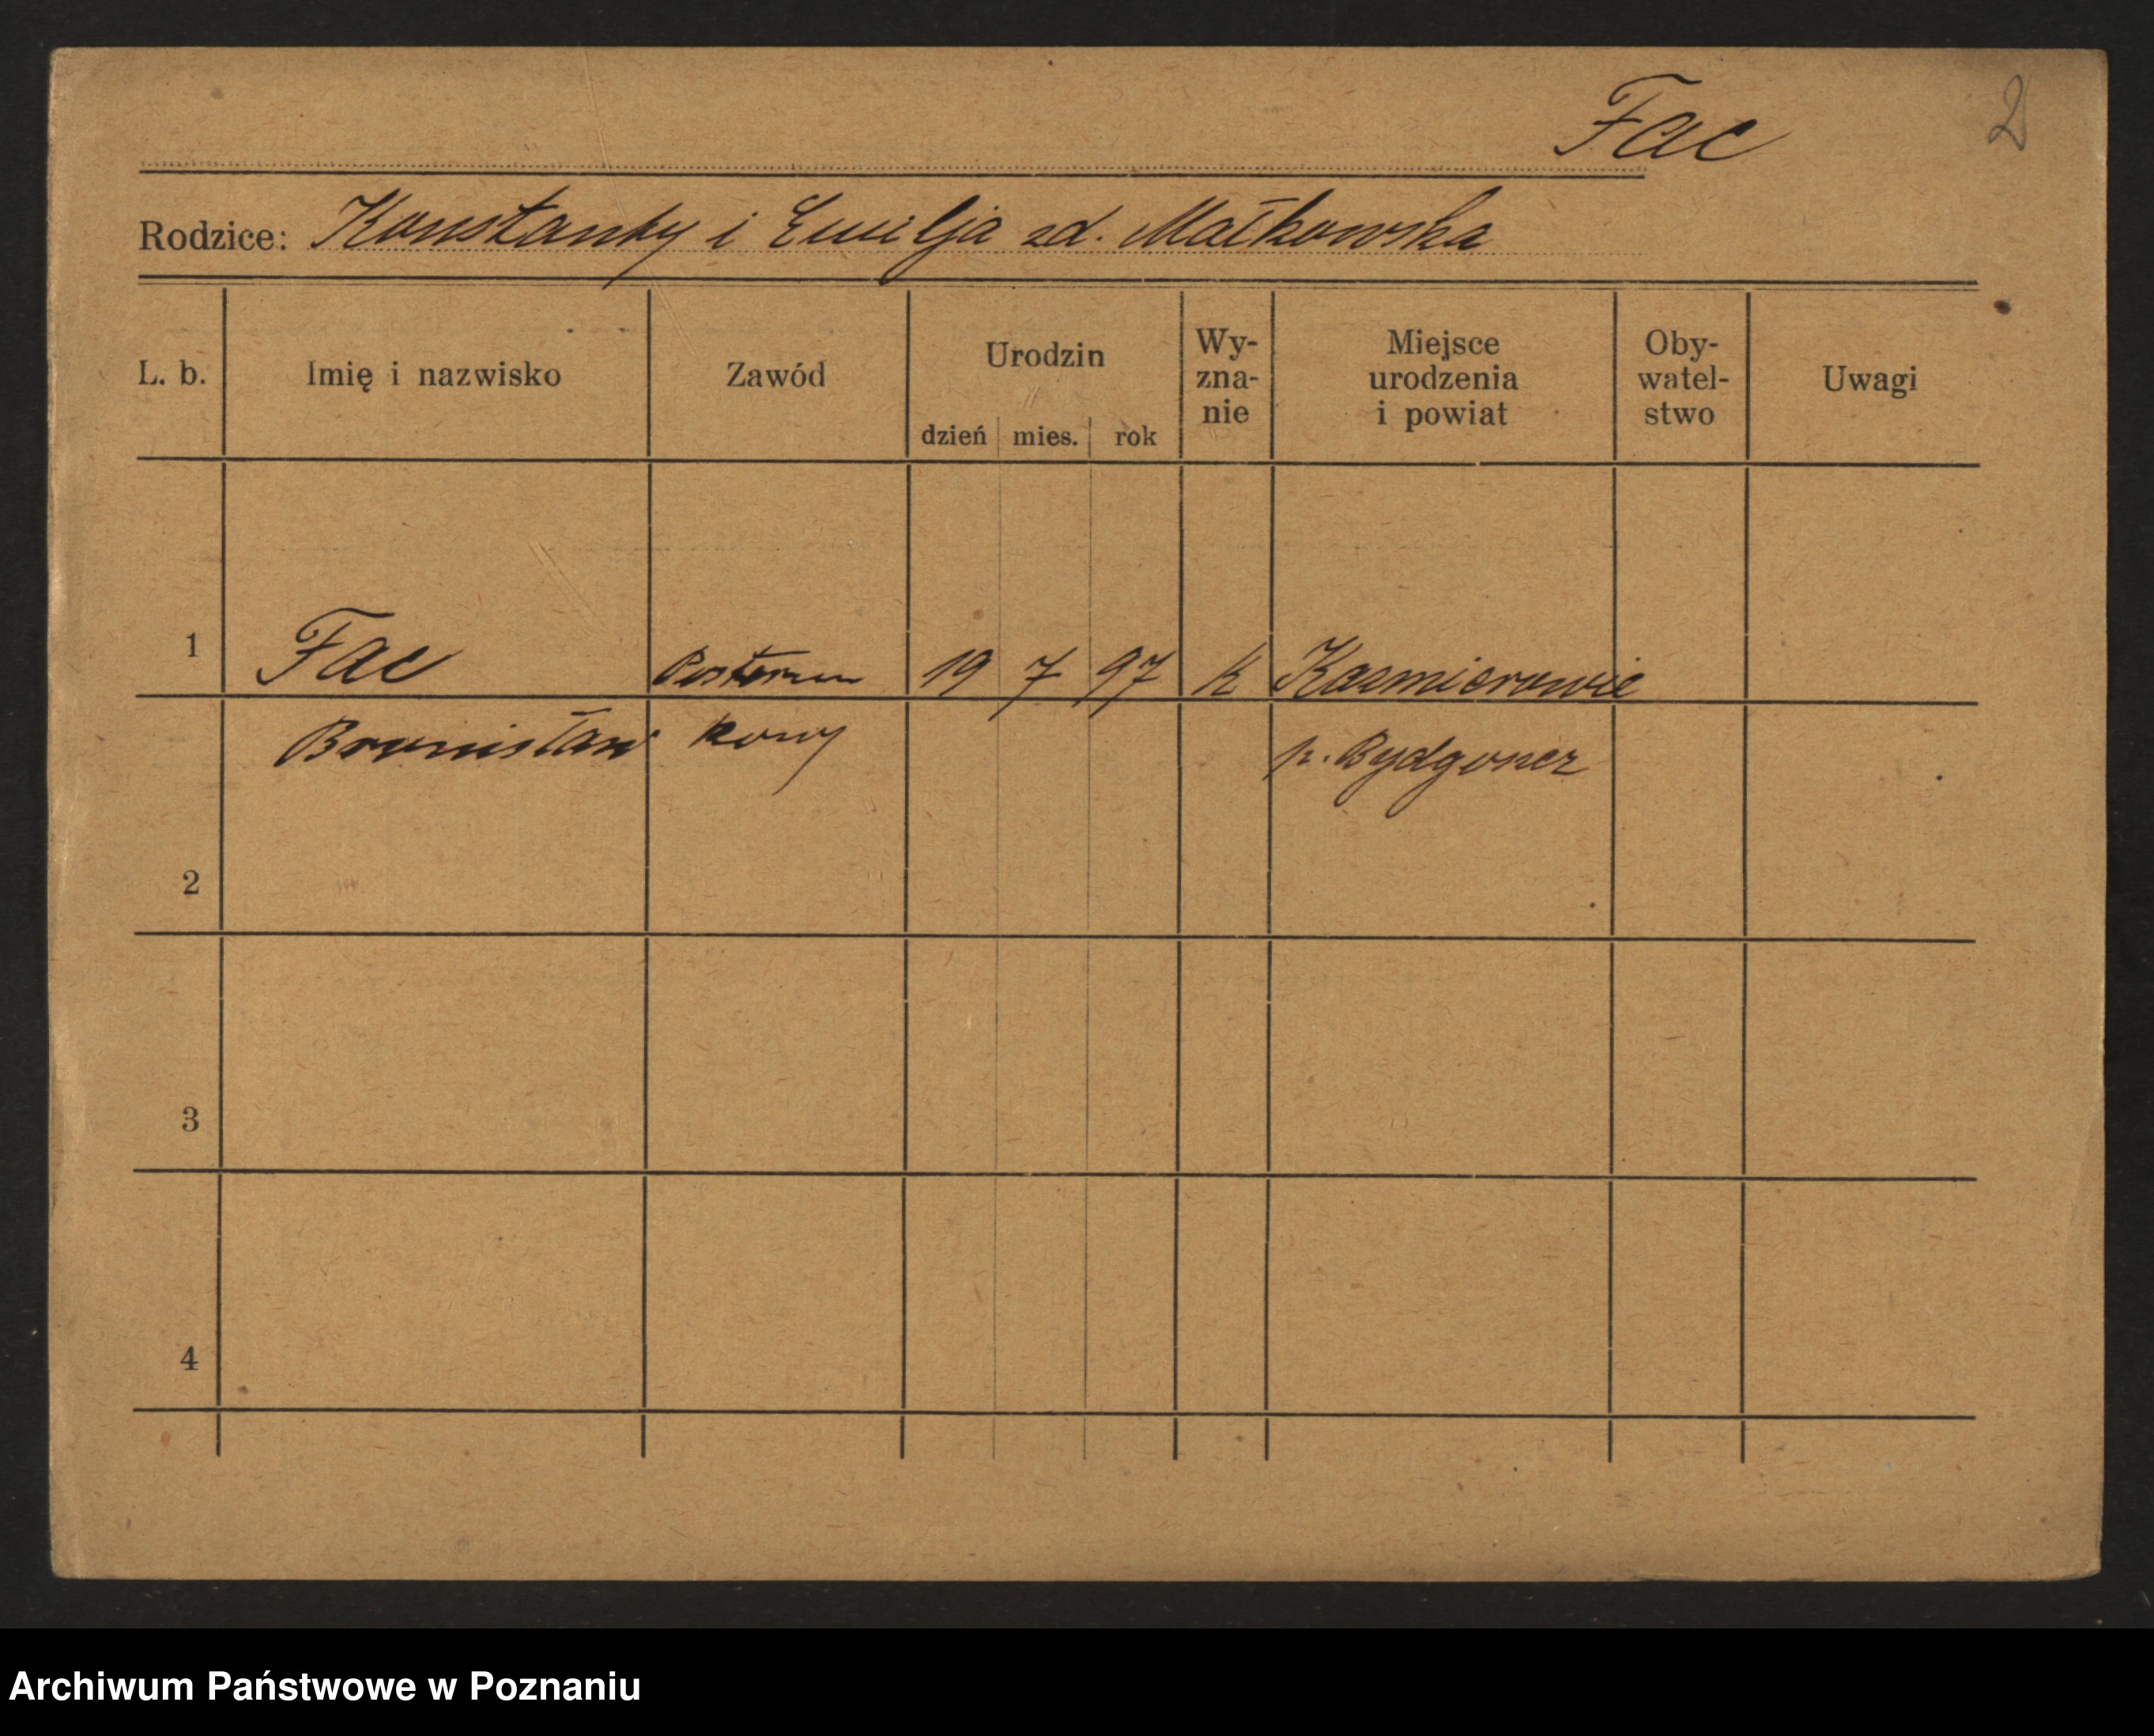 Fac
2
Rodzice: Konstanty i Emilja zd. Małkowska
L. b. Imię i nazwisko Zawód Urodzin dzień mies. rok Wy-zna-nie Miejsce urodzenia i powiat Oby-watel-stwo Uwagi
1 Fac Posterun 19 7 97 k Kazmierowie
Bronisław kowy p. Bydgoszcz
2
3
4
Archiwum Państwowe w Poznaniu